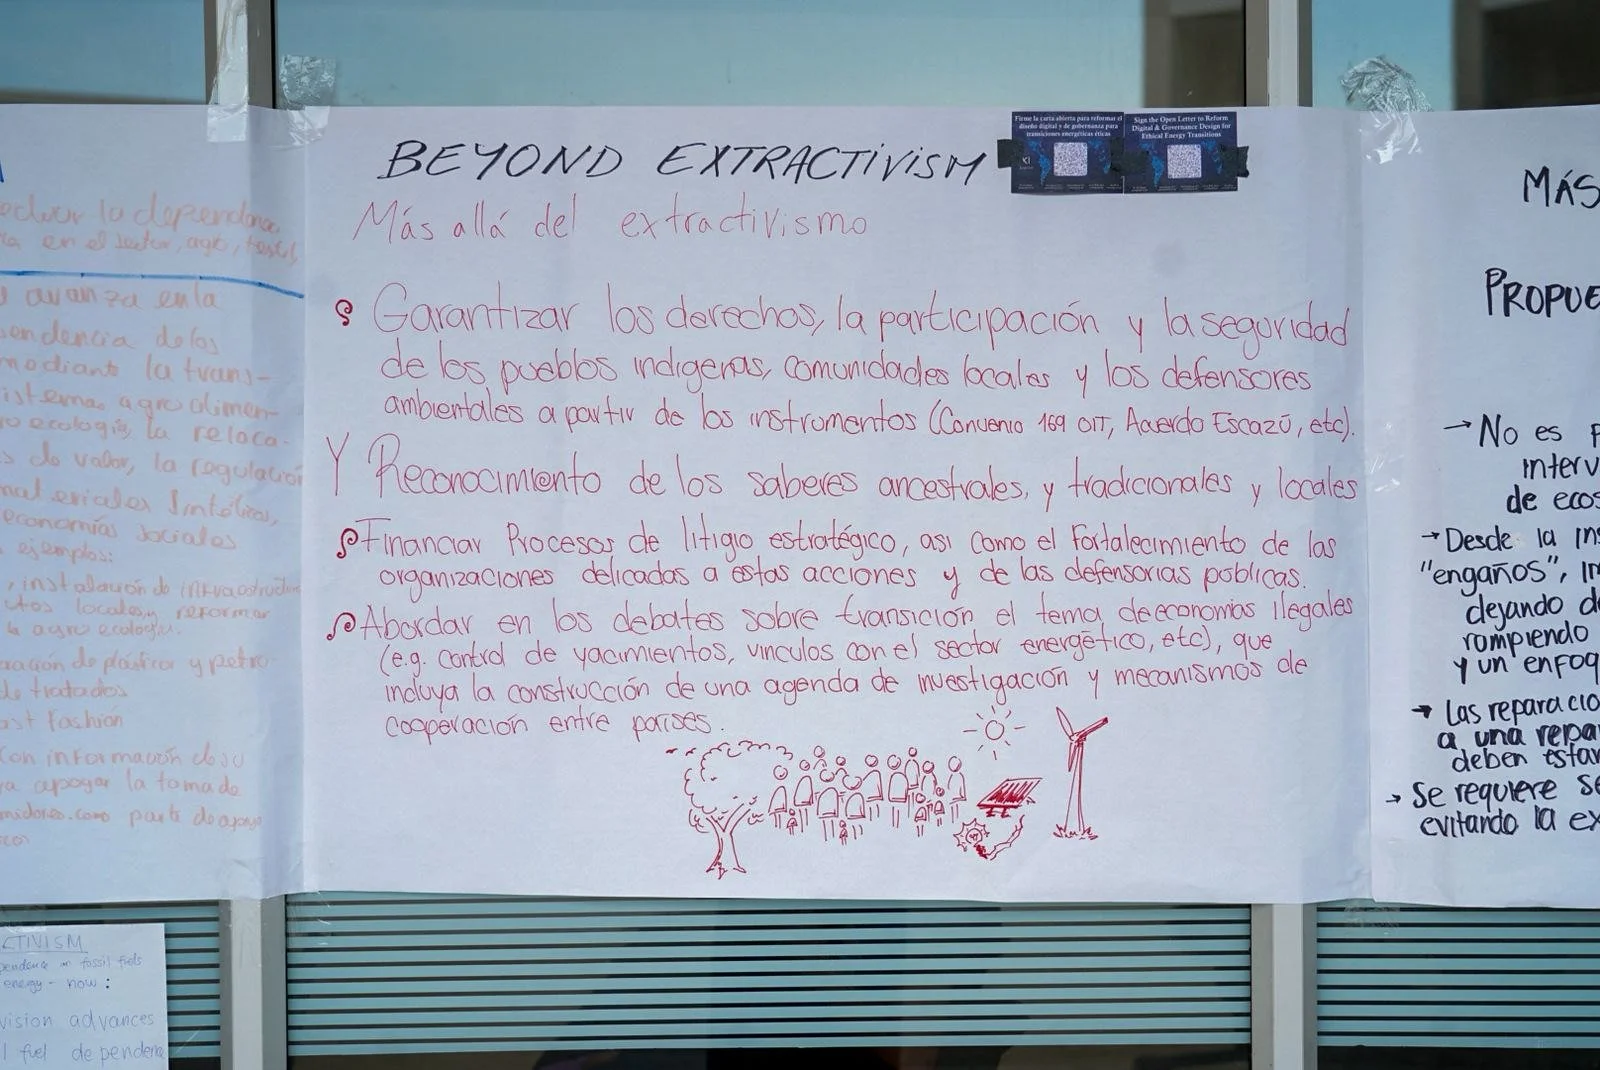 BEYOND EXTRACTIVISM
Más allá del extractivismo
Garantizar los derechos, la participación y la seguridad
de los pueblos indigenas, comunidades locales y los defensores
ambientales a partir de los instrumentos (Convenio 169 OIT, Acuerdo Escazú, etc).
Y Reconocimiento de los saberes ancestrales, y tradicionales y locales
Financiar Procesos de litigio estratégico, asi como el fortalecimiento de las
organizaciones delicadas a estas acciones y de las defensorias públicas.
Abordar en los debates sobre transición el tema de economias ilegales
(e.g. control de yacimientos, vinculos con el sector energético, etc), que
incluya la construcción de una agenda de investigación y mecanismos de
cooperación entre paises.
Firme la carta abierta para reformar el
diseño digital y de gobernanza para
transiciones energéticas éticas
Sign the Open Letter to Reform
Digital & Governance Design for
Ethical Energy Transitions
la dependencia
en el sector, agro,
avanza en la
de los
la trans-
agro alimen-
la reloca-
de valor, la regulación
economías sociales
ejemplos:
, instalación de
locales y reformar
agroecología.
de plástico y petro
de tratados
fashion
Con información de su
apoyar la toma de
como parte de apoyo
CTIVISM
pendence on fossil fuels
energy - now:
vision advances
l fuel dependen
MÁS
PROPUE
→ No es p
interv
de ecos
→ Desde la ins
"engaños", in
dejando de
rompiendo
y un enfoq
→ Las reparacio
a una repa
deben estar
→ Se requiere se
evitando la ex